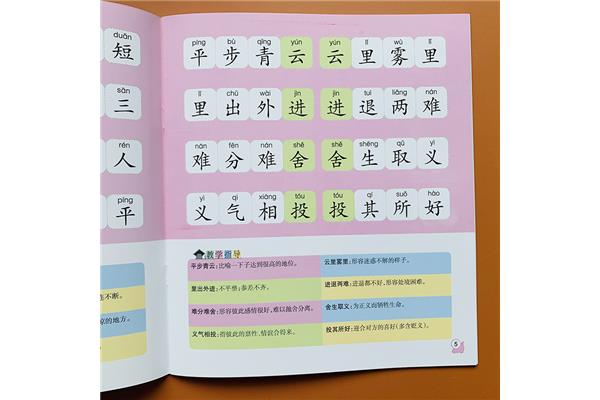 duǎn
短
sān
三
rén
人
píng
平
píng bù qīng yún yún lǐ wù lǐ
平步青云云里雾里
lǐ chū wài jìn jìn tuì liǎng nán
里出外进进退两难
nán fēn nán shě shě shēng qǔ yì
难分难舍舍生取义
yì qì xiāng tóu tóu qí suǒ hào
义气相投投其所好
教学指导
平步青云:比喻一下子达到很高的地位。
云里雾里:形容迷惑不解的样子。
里出外进:不平整;参差不齐。
进退两难:进退都不好,形容处境困难。
难分难舍:形容彼此感情很好,难以抛舍分离。
舍生取义:为正义而牺牲生命。
义气相投:指彼此的意性、情谊合得来。
投其所好:迎合对方的喜好(多含贬义)。
连不断。
的地方。
5